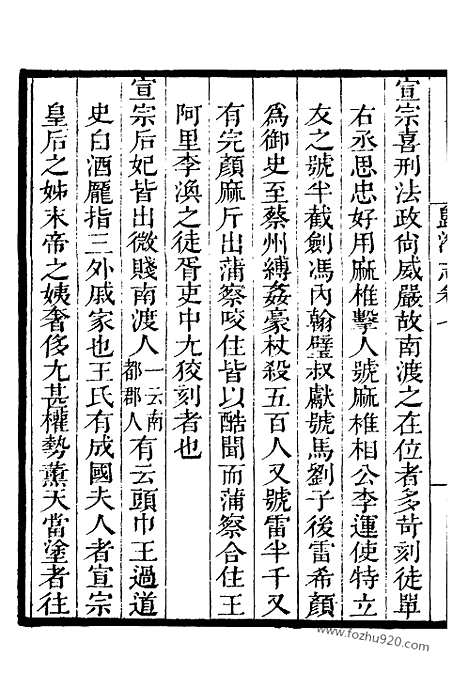 歸潛志卷七
宣宗喜刑法政尙威嚴故南渡之在位者多苛刻徒單
右丞思忠好用麻椎擊人號麻椎相公李運使特立
友之號半截劍馮內翰璧叔獻號馬劉子後雷希顏
爲御史至蔡州縛姦豪杖殺五百人又號雷半千又
有完顏麻斤出蒲察咬住皆以酷聞而蒲察合住王
阿里李渙之徒胥吏中尤狡刻者也
宣宗后妃皆出微賤南渡人一云南都郡人有云頭巾王過道
史白酒龐指三外戚家也王氏有成國夫人者宣宗
皇后之姊末帝之姨奢侈尤甚權勢薰天當塗者往
www.fozhu920.com